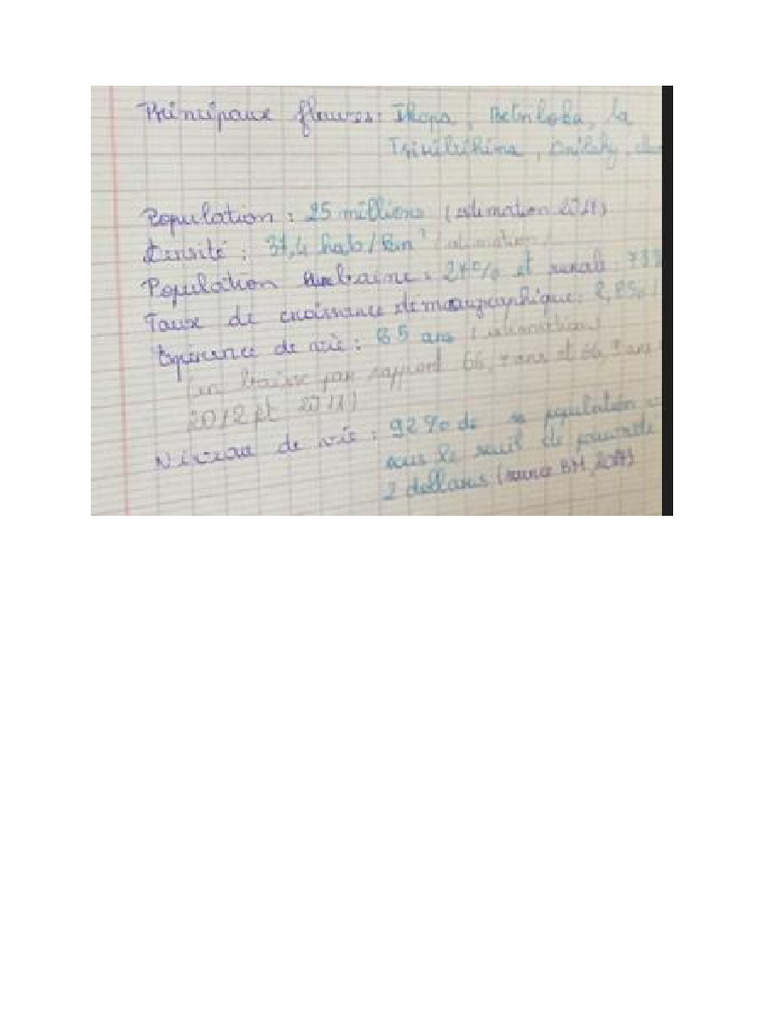 Principaux fleuves: Ikopa, Betsiboka, la
Tsiribihina,
Population : 25 millions (estimation 2018)
Densité : 37,4 hab/km² (estimation)
Population urbaine : 27% et rurale 73%
Taux de croissance demographique: 2,8%
Espérance de vie : 65 ans (estimation)
(en baisse par rapport 66, ans et 66, ans
2012 et 2018)
Niveau de vie : 92% de sa population
sous le seuil de pauvreté
2 dollars (source BM,